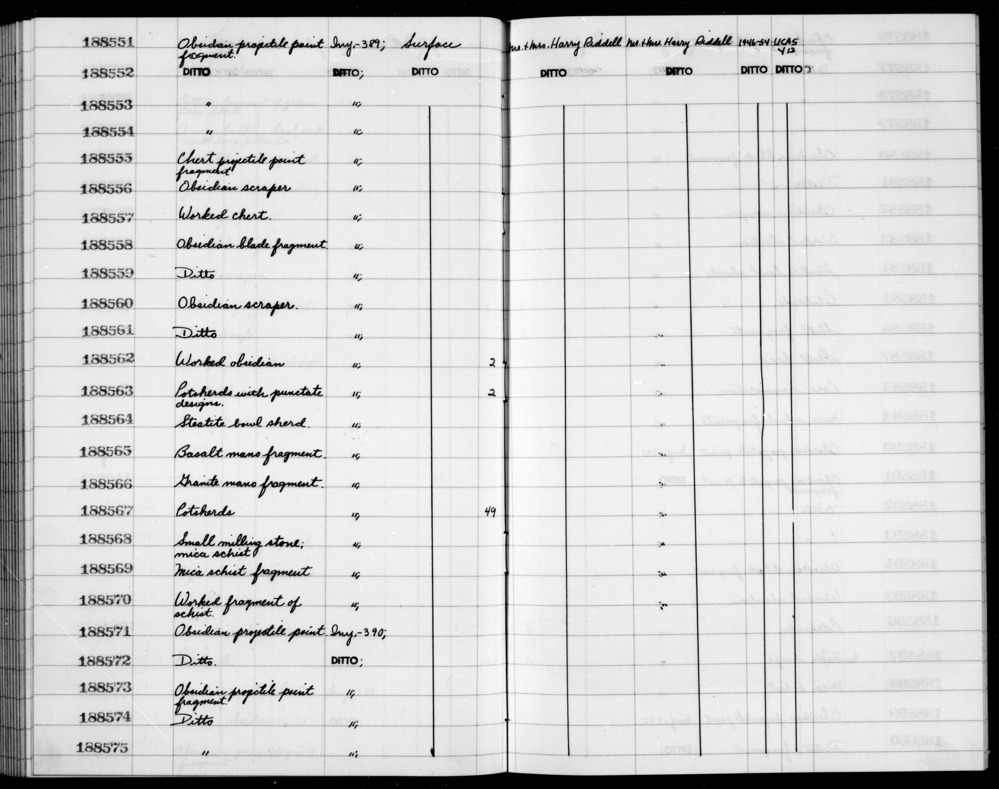 188551 Obsidian projectile point Iny.-389; Surface Mr. & Mrs. Harry Riddell Mr. & Mrs. Harry Riddell 1946-54 UCAS
fragment.
188552 DITTO DITTO; DITTO DITTO DITTO DITTO DITTO
188553 " ";
188554 " ";
188555 Chert projectile point ";
fragment
188556 Obsidian scraper ";
188557 Worked chert. ";
188558 Obsidian blade fragment. ";
188559 Ditto ";
188560 Obsidian scraper. ";
188561 Ditto ";
188562 Worked obsidian "; 2
188563 Potsherds with punctate "; 2
designs.
188564 Steatite bowl sherd. ";
188565 Basalt mano fragment. ";
188566 Granite mano fragment. ";
188567 Potsherds "; 49
188568 Small milling stone; ";
mica schist
188569 Mica schist fragment ";
188570 Worked fragment of ";
schist.
188571 Obsidian projectile point. Iny.-390;
188572 Ditto. DITTO;
188573 Obsidian projectile point ";
fragment.
188574 Ditto ";
188575 " ";